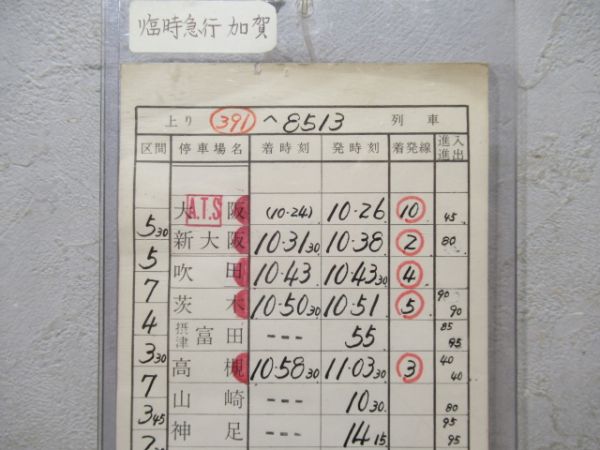 臨時急行 加賀
上り 391 へ8513 列車
区間 停車場名 着時刻 発時刻 着発線 進入 進出
大阪 A.T.S (10·24) 10·26 10 45
5 30
新大阪 10·31 30 10·38 2 80
5
吹田 10·43 10·43 30 4
7
茨木 10·50 30 10·51 5 90 90
4
摂津富田 --- 55 85 95
3 30
高槻 10·58 30 11·03 30 3 40 40
7
山崎 --- 10 30 80
3 45
神足 --- 14 15 95 95